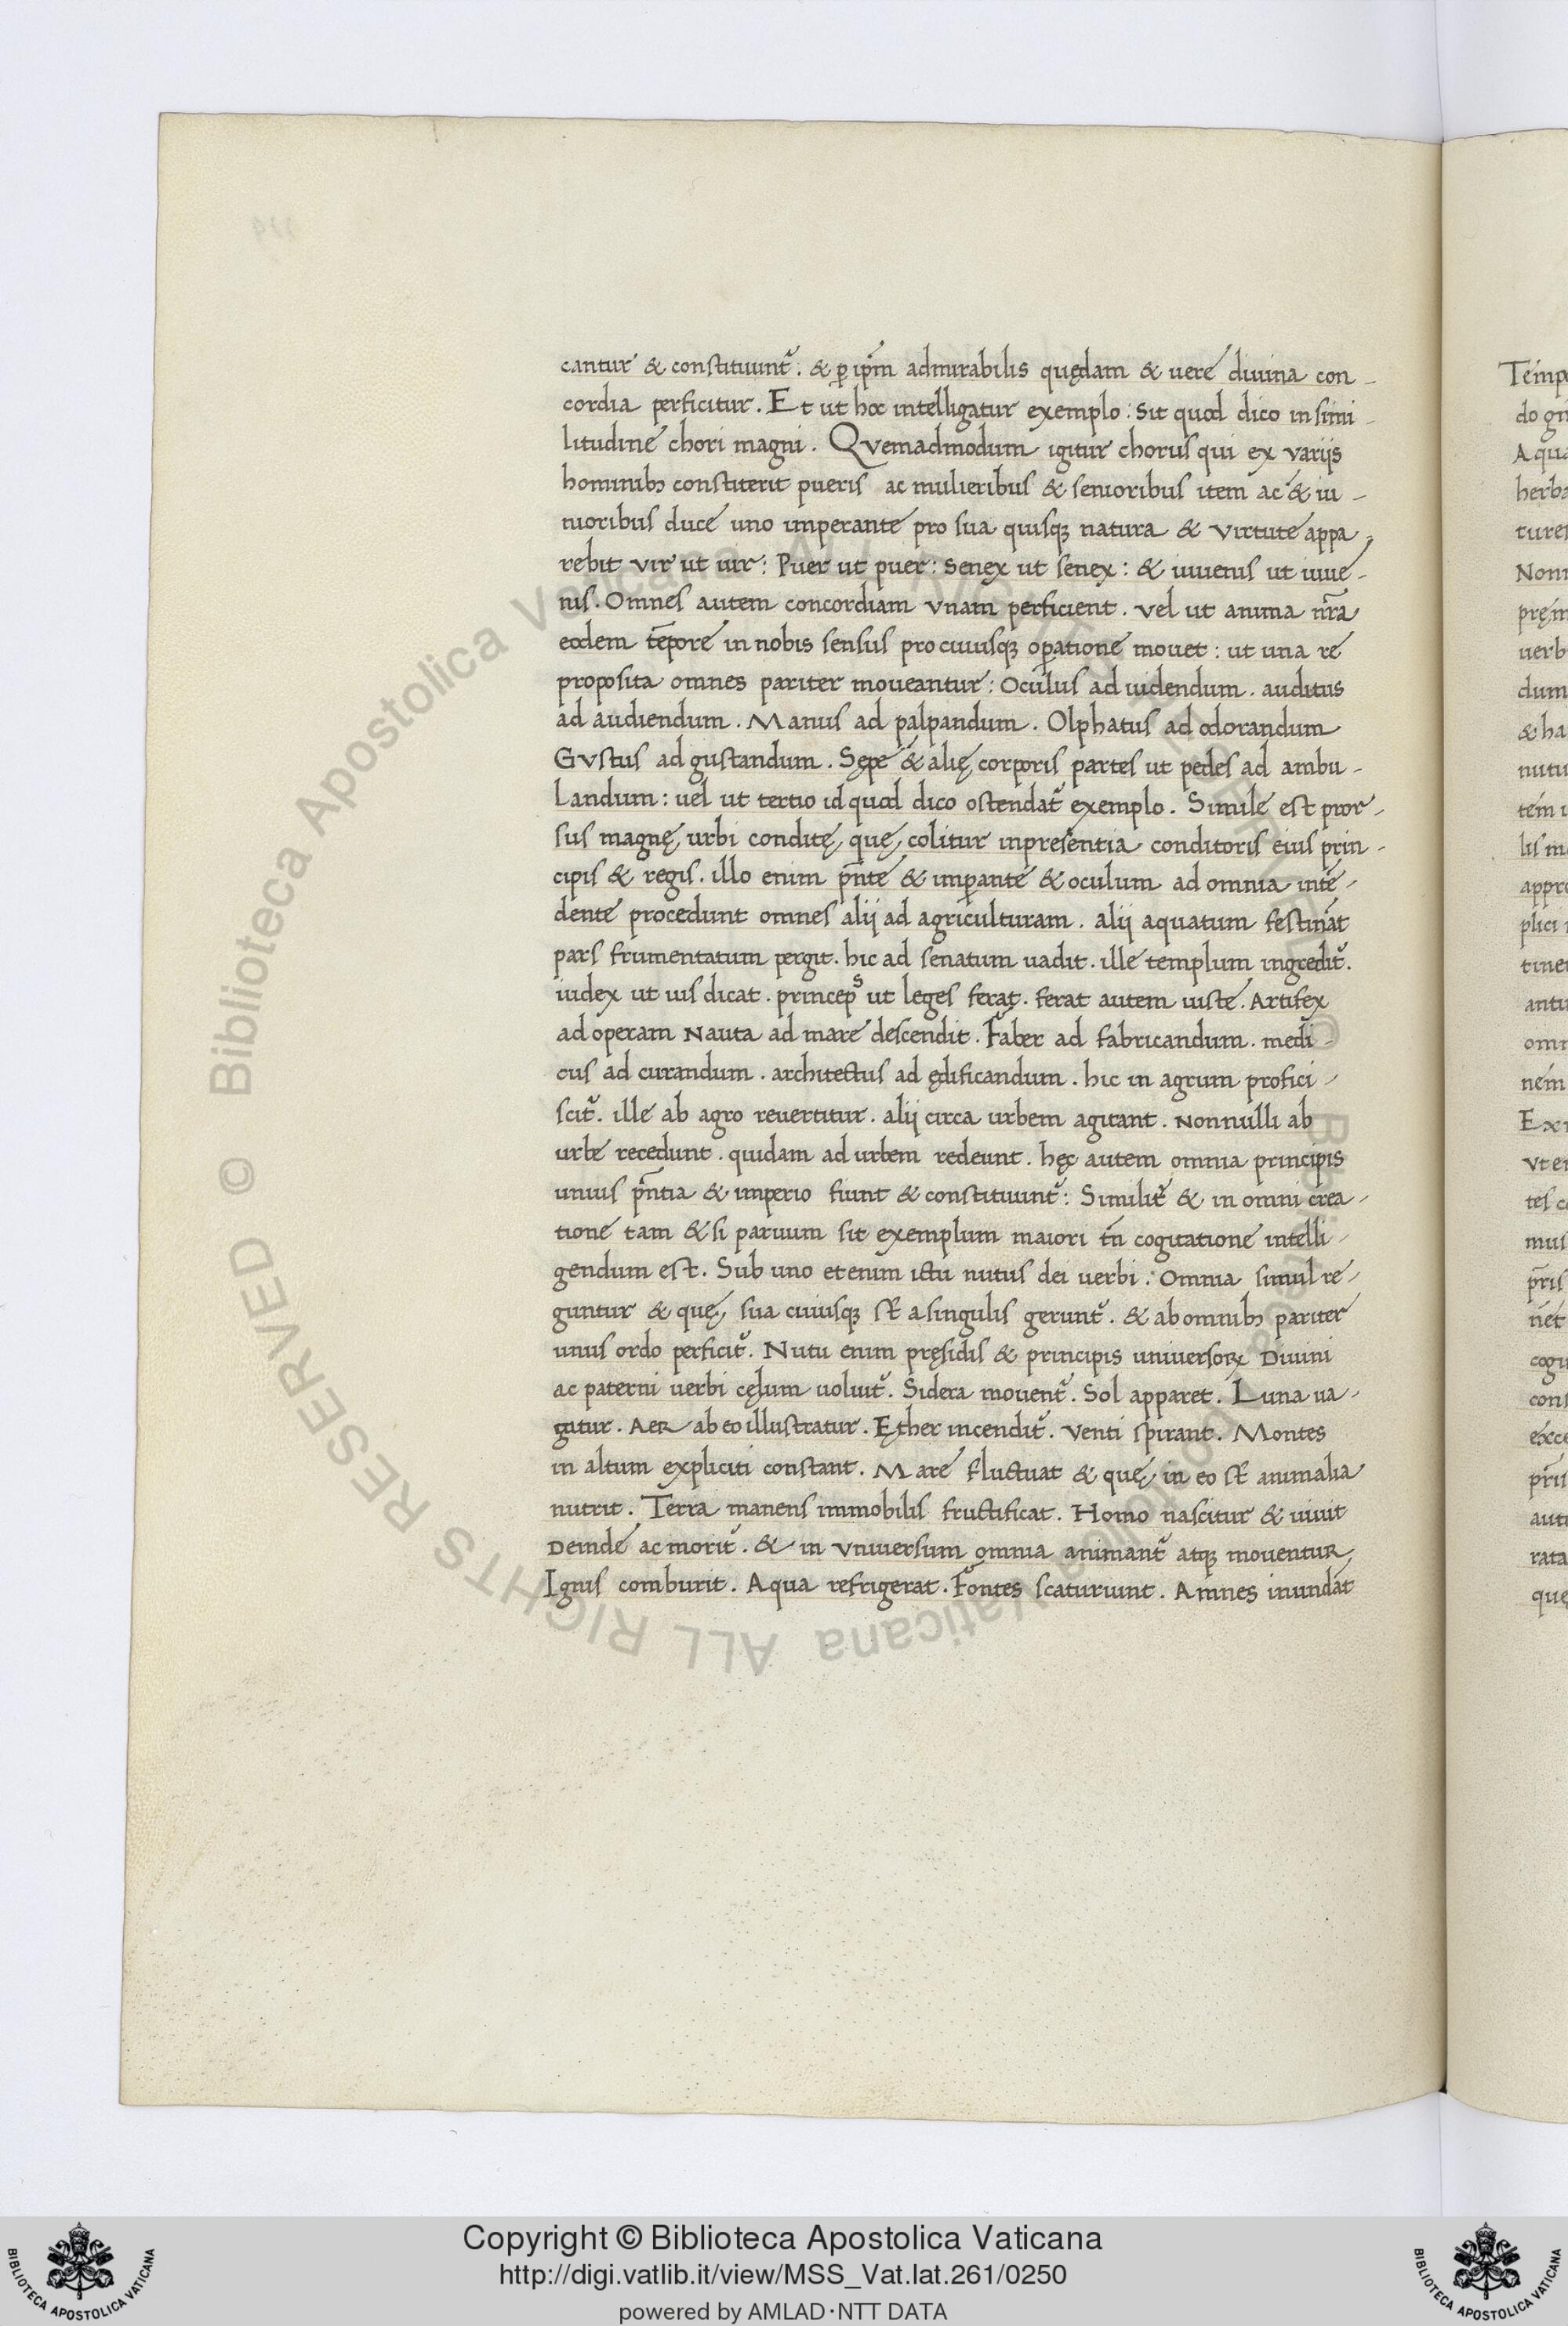 cantur & constituunt̃. & ꝑ ip̃m admirabilis quędam & uere diuina con-
cordia perficitur. Et ut hoc intelligatur exemplo: Sit quod dico in simi-
litudine chori magni. Qvemadmodum igitur chorus qui ex variis
hominibꝫ constiterit pueris ac mulieribus & senioribus item ac & iu-
nioribus duce uno imperante pro sua quisqꝫ natura & virtute appa-
rebit vir ut uir: Puer ut puer: Senex ut senex: & iuuenis ut iuue-
nis. Omnes autem concordiam vnam perficient. vel ut anima nr̃a
eodem tẽpore in nobis sensus pro cuiusqꝫ oꝑatione mouet: ut una re
proposita omnes pariter moueantur: Oculus ad uidendum. auditus
ad audiendum. Manus ad palpandum. Olphatus ad odorandum
Gvstus ad gustandum. Sępe & alię corporis partes ut pedes ad ambu-
landum: uel ut tertio id quod dico ostendat̃ exemplo. Simile est pror-
sus magnę urbi conditę, quę colitur in presentia conditoris eius prin-
cipis & regis. illo enim p̃nte & imꝑante & oculum ad omnia intẽ-
dente procedunt omnes alij ad agriculturam. alij aquatum festinãt
pars frumentatum pergit. hic ad senatum uadit. ille templum ingredit̃.
iudex ut ius dicat. princeps ut leges ferat. ferat autem iuste. Artifex
ad operam Nauta ad mare descendit. Faber ad fabricandum. medi-
cus ad curandum. architectus ad ędificandum. hic in agrum profici-
scit̃. ille ab agro reuertitur. alij circa urbem agitant. Nonnulli ab
urbe recedunt. quidam ad urbem redeunt. hęc autem omnia principis
unius p̃ntia & imperio fiunt & constituunt̃: Similit̃ & in omni crea-
tione tam & si paruum sit exemplum maiori tñ cogitatione intelli-
gendum est. Sub uno etenim ictu nutus dei uerbi: Omnia simul re-
guntur & quę sua cuiusqꝫ st̃ a singulis gerunt̃. & ab omnibꝫ pariter
unus ordo perficit̃. Nutu enim pręsidis & principis uniuersoꝝ Diuini
ac paterni uerbi cęlum uoluit̃. Sidera mouent̃. Sol apparet. Luna ua-
gatur. Aer ab eo illustratur. Ęther incendit̃. Venti spirant. Montes
in altum expliciti constant. Mare fluctuat & quę in eo st̃ animalia
nutrit. Terra manens immobilis fructificat. Homo nascitur & uiuit
Deinde ac morit̃. & in vniuersum omnia animant̃ atqꝫ mouentur,
Ignis comburit. Aqua refrigerat. Fontes scaturiunt. Amnes inundãt
© Biblioteca Apostolica Vaticana ALL RIGHTS RESERVED
Copyright © Biblioteca Apostolica Vaticana
http://digi.vatlib.it/view/MSS_Vat.lat.261/0250
powered by AMLAD·NTT DATA
BIBLIOTECA APOSTOLICA VATICANA
BIBLIOTECA APOSTOLICA VATICANA